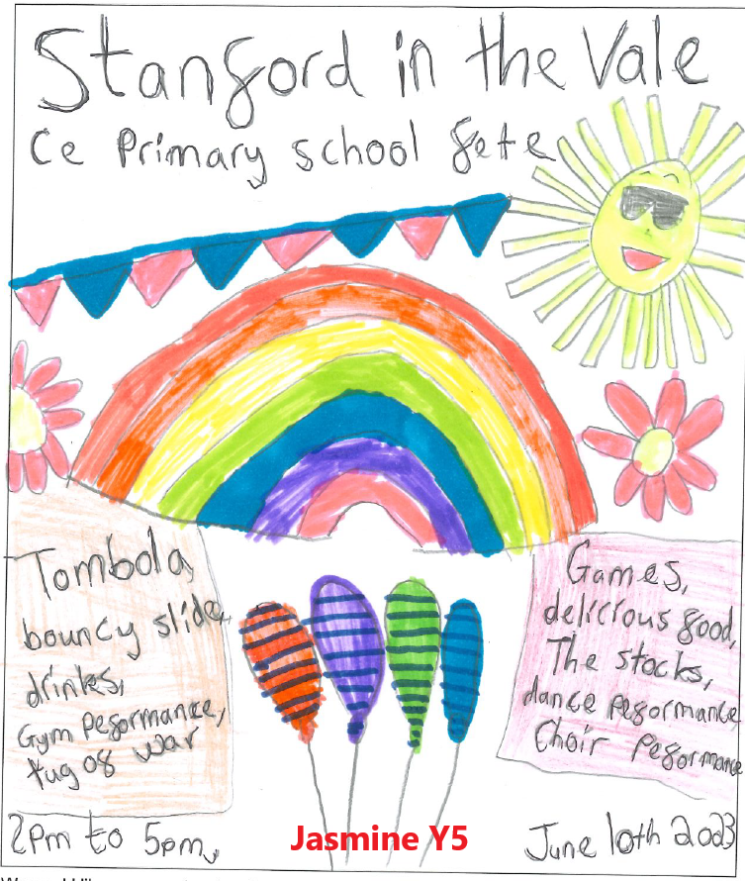 Stanford in the Vale
Ce Primary school fete
Tombola
bouncy slide,
drinks,
Gym Peformance,
tug of war
Games,
delicious food,
The stocks,
dance peformance
Choir Peformance
2pm to 5pm,
Jasmine Y5
June 10th 2023